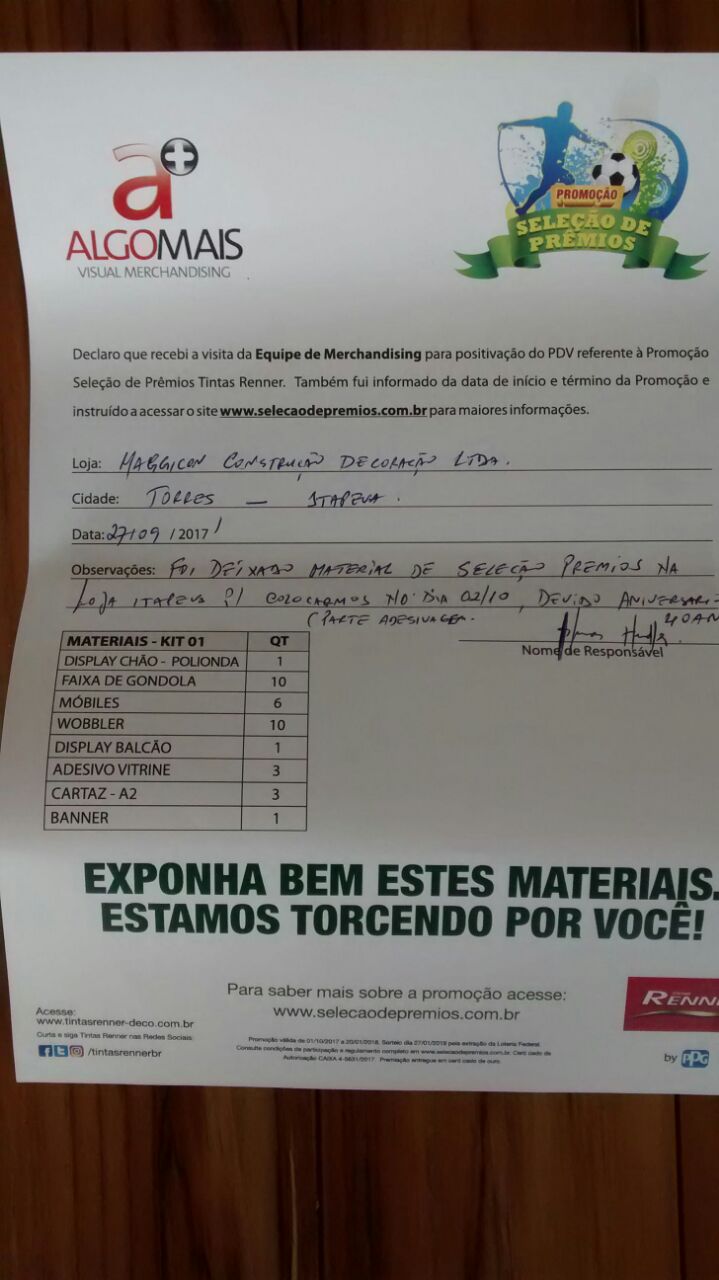 a+
ALGOMAIS
VISUAL MERCHANDISING
PROMOÇÃO
SELEÇÃO DE
PRÊMIOS
Declaro que recebi a visita da Equipe de Merchandising para positivação do PDV referente à Promoção
Seleção de Prêmios Tintas Renner. Também fui informado da data de início e término da Promoção e
instruído a acessar o site www.selecaodepremios.com.br para maiores informações.
Loja: MAGGICON CONSTRUÇÃO DECORAÇÃO LTDA.
Cidade: TORRES — ITAPEVA.
Data: 27/09 / 2017
Observações: FOI DEIXADO MATERIAL DE SELEÇÃO PREMIOS NA
LOJA ITAPEVA P/ COLOCARMOS NO DIA 02/10, DEVIDO ANIVERSARI
(PARTE ADESIVAGEM. 40 AN
Nome de Responsável
MATERIAIS - KIT 01 QT
DISPLAY CHÃO - POLIONDA 1
FAIXA DE GONDOLA 10
MÓBILES 6
WOBBLER 10
DISPLAY BALCÃO 1
ADESIVO VITRINE 3
CARTAZ - A2 3
BANNER 1
EXPONHA BEM ESTES MATERIAIS.
ESTAMOS TORCENDO POR VOCÊ!
Para saber mais sobre a promoção acesse:
www.selecaodepremios.com.br
Acesse:
www.tintasrenner-deco.com.br
Curta e siga Tintas Renner nas Redes Sociais:
/tintasrennerbr
Promoção válida de 01/10/2017 a 20/01/2018. Sorteio dia 27/01/2018 pela extração da Loteria Federal.
Consulte condições de participação e regulamento completo em www.selecaodepremios.com.br. Cert cado de
Autorização CAIXA 4-5631/2017. Premiação entregue em cert cado de ouro.
RENN
by PPG